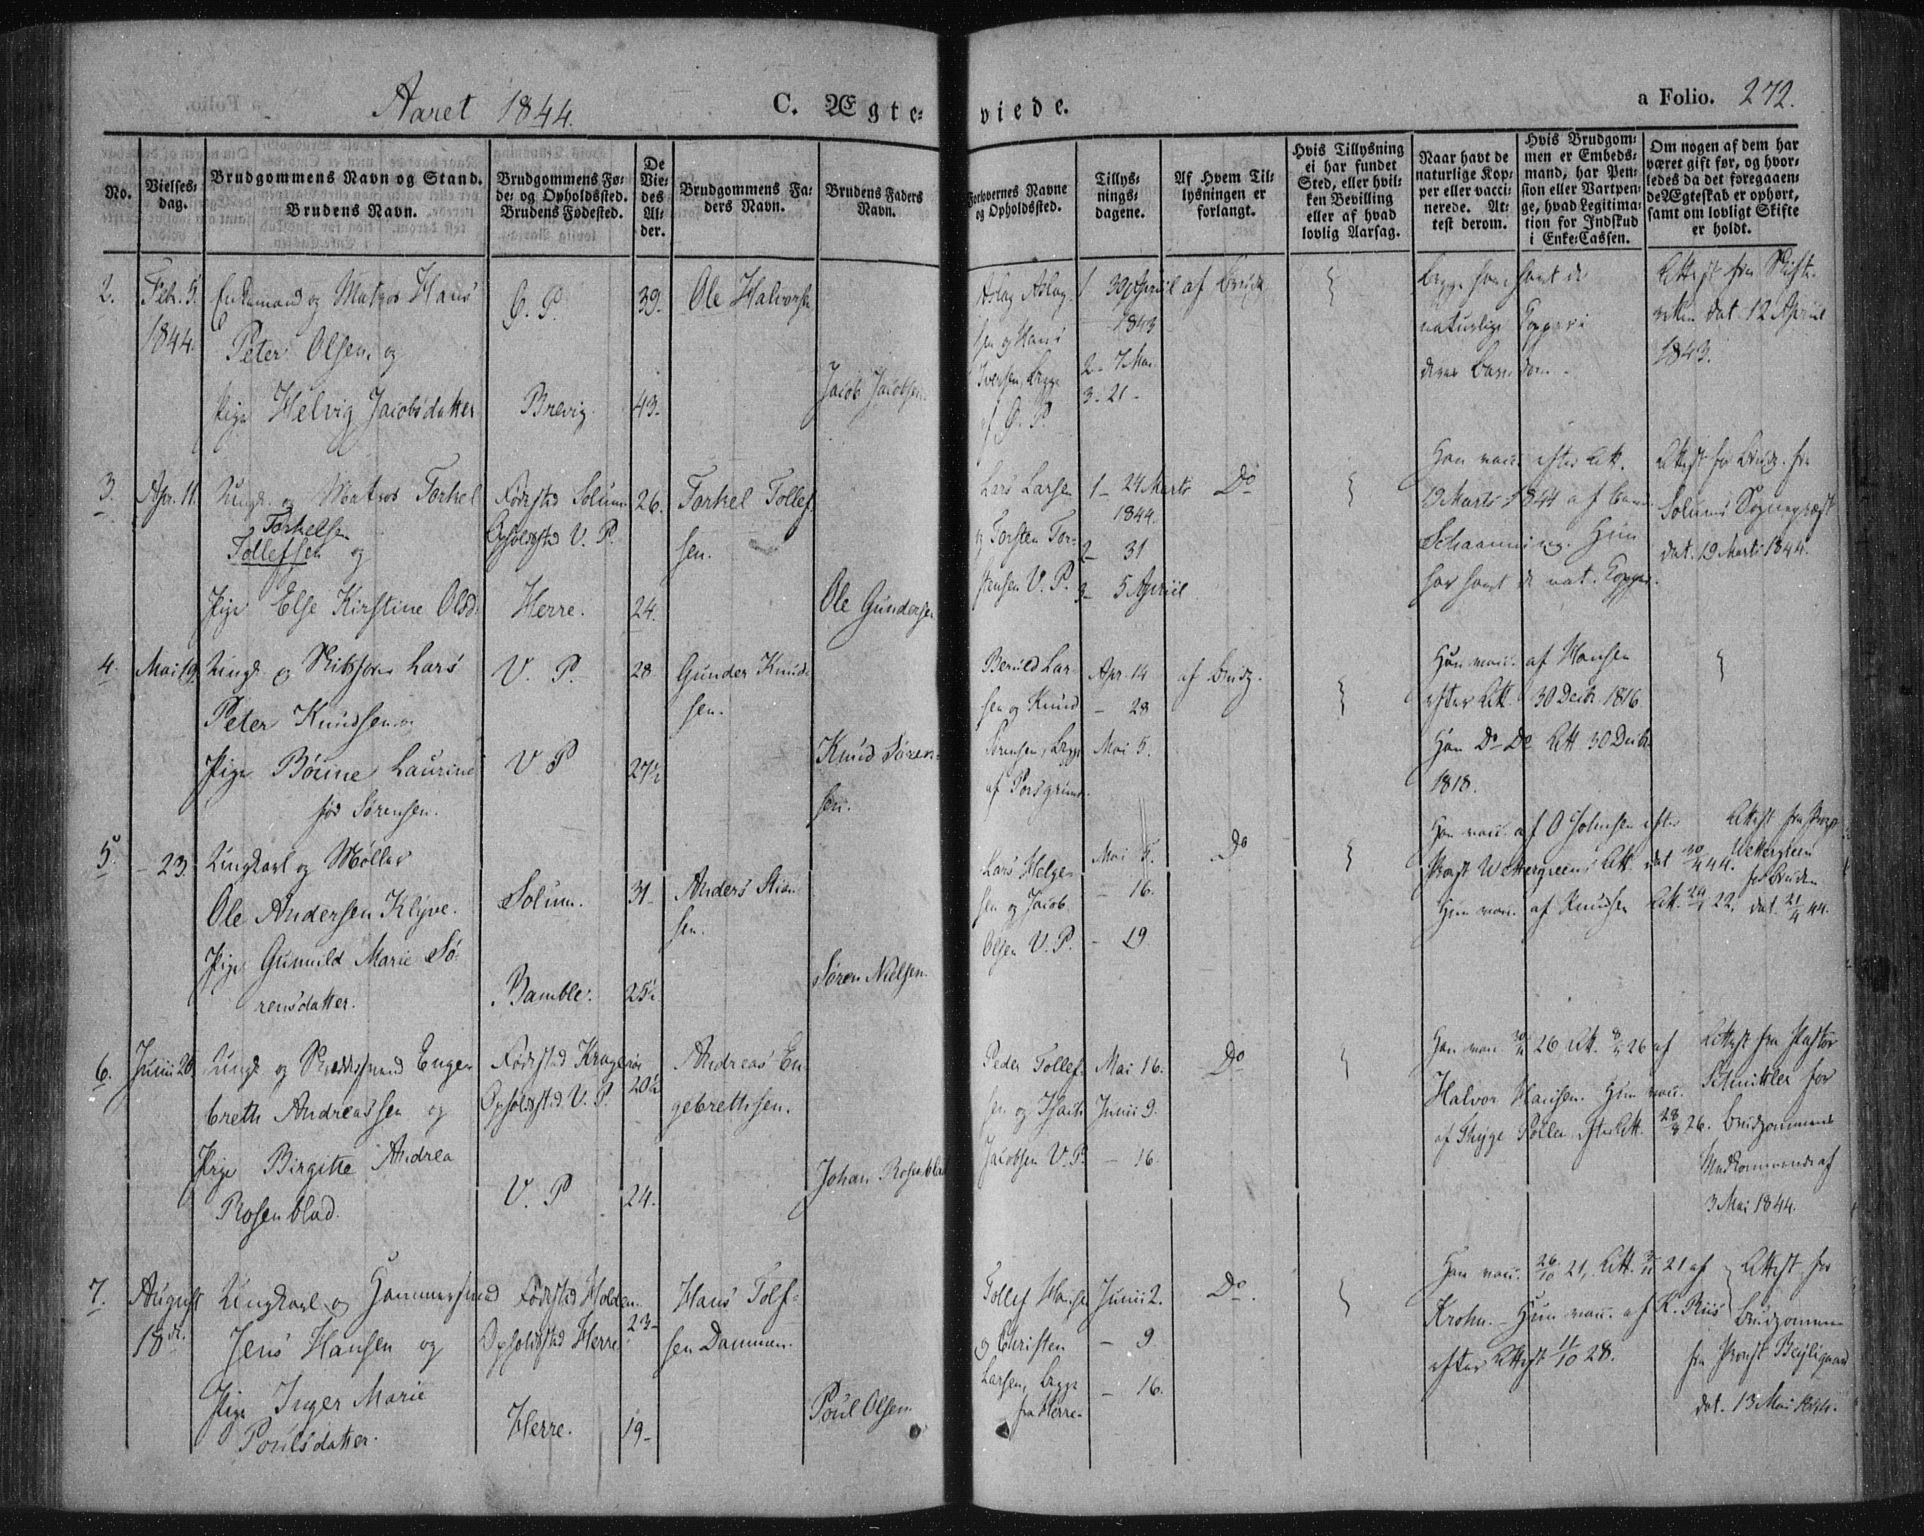 Aaret 1844.
C. Ægte-
viede.
a Folio. 272.
No.
Vielses-
dag.
Brudgommens Navn og Stand.
Brudens Navn.
Brudgommens Fø-
de- og Opholdssted.
Brudens Fødested.
De
Vie-
des
Al-
der.
Brudgommens Fa-
ders Navn.
Brudens Faders
Navn.
Forlovernes Navne
og Opholdssted.
Tillys-
nings-
dagene.
Af Hvem Til-
lysningen er
forlangt.
Hvis Tillysning
ei har fundet
Sted, eller hvil-
ken Bevilling
eller af hvad
lovlig Aarsag.
Naar havt de
naturlige Kop-
per eller vacci-
nerede. At-
test derom.
Hvis Brudgom-
men er Embeds-
mand, har Pen-
sion eller Vartpen-
ge, hvad Legitima-
tion for Indskud
i Enke-Cassen.
Om nogen af dem har
været gift før, og hvor-
ledes da det foregaaen-
de Ægteskab er ophørt,
samt om lovligt Skifte
er holdt.
2.
Feb. 5.
1844.
Enkemand og Matros Hans
Peter Olsen og
Pige Helvig Jacobsdatter
Ø. P.
Brevig.
39.
43.
Ole Halvorsen
Jacob Jacobsen.
Aslag Aslag-
sen og Hans
Iversen, begge
af Ø. P
1 30 April
1843
2- 7 Mai
3- 21-
af Brudg.
begge have havt de
naturlige Kopper i
deres Barndom.
Attest fra Skifte-
retten dat. 12 April
1843.
3.
Apr. 11.
Ungk. og Matros Torkel
Torkelsen
Tollefsen og
Pige Else Kirstine Olsd.
Fødested Solum
Opholdsted V. P.
Herre.
26.
24.
Torkel Tollef-
sen.
Ole Gundersen
Lars Larsen
og Torsten Tor-
stensen V. P.
1- 24 Marts
1844.
2- 31
3- 5 April
Do
Han vacc. efter Att.
19 Marts 1844 af
Schaanning. Hun
har havt de nat. Kopper.
Attest for Brudg. fra
Solums Sognepræst
dat. 19 Marts 1844.
4.
Mai 19.
Ungk. og Lars
Peter Knudsen og
Pige Børine Laurine
fød Sørensen.
V. P.
V. P
28
27½
Gunder Knud-
sen.
Knud Søren-
sen.
Berild Lar-
sen og Knud
Sørensen, begge
af Porsgrund.
Apr. 14
- 28
Mai 5.
af Brudg.
Han vacc. af Hansen
efter Att. 30 Decb. 1816
Hun Do Do Att 30 Decbr
1818.
5.
- 23.
Ungkarl og Møller
Ole Andersen Klyve.
Pige Gunnild Marie Sø-
rensdatter.
Solum.
Bamble.
31-
25½
Anders Stian-
sen.
Søren Nielsen.
Lars Helge-
sen og Jacob
Olsen V. P.
Mai 5.
- 16.
- 19
Do
Han vacc. af O Johnsen efter
Provst Wettergreens Att. dat 30/4 44.
Hun vacc. af Knudsen Att. 22.
Attest fra Provst
Wettergreen
for Bruden
dat. 21/4 44.
6.
Junii 20.
Ungk. og Enge-
breth Andreassen og
Pige Birgitte Andrea
Rosenblad.
Fødested Kragerø
Opholdsted V. P.
V. P
20½
24.
Andreas En-
gebrethsen.
Johan Rosenblad
Peder Tollef-
sen og Isach
Jacobsen V. P.
Mai 16.
Junii 9.
- 16.
Do
Han vacc. 26 Att. 26 af
Halvor Hansen. Hun vacc.
af Møller, efter Att. 28/8 26.
Attest fra Pastor
Schnitler for
Brudgommens
Vedkommende af
3 Mai 1844.
7.
August
18de
Ungkarl og Hammersmed
Jens Hansen og
Pige Inger Marie
Poulsdatter.
Fødested Holden.
Opholdsted Herre
Herre.
23-
19-
Hans Tolf-
sen Dammen.
Poul Olsen.
Tollef Hansen
og Christen
Larsen, begge
fra Herre.
Junii 2.
- 9.
- 16.
Do.
Han vacc. 26/10 21, Att. 21 af
Krohn. Hun vacc. af K. Riis
efter Attest 11/10 28.
Attest for
Brudgommen
fra Provst
dat. 13 Mai 1844.